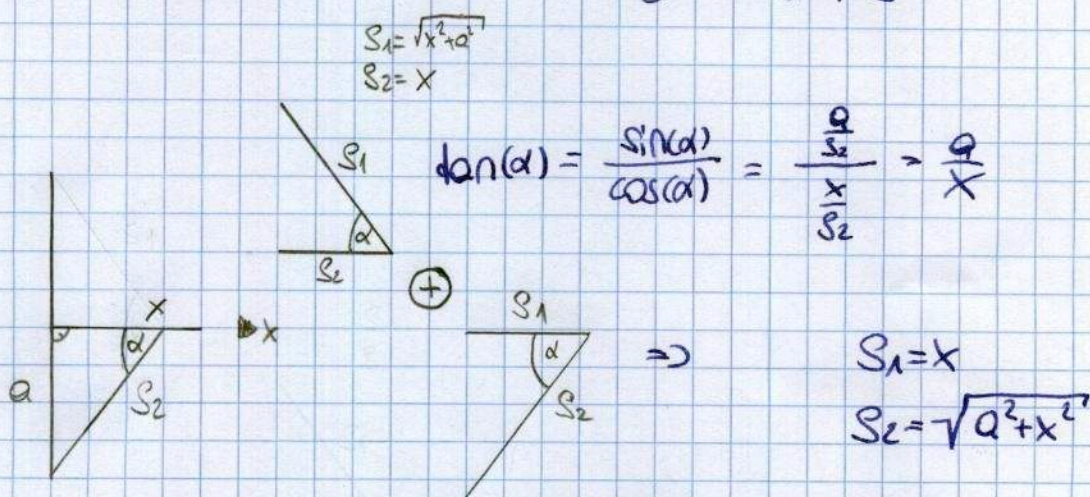 S₁ = √(x²+a²)
S₂ = x
S₁
α
S₂
tan(α) = sin(α)/cos(α) = (a/S₂)/(x/S₂) = a/x
+
x
α
a
S₂
x
S₁
α
S₂
=>
S₁ = x
S₂ = √(a²+x²)